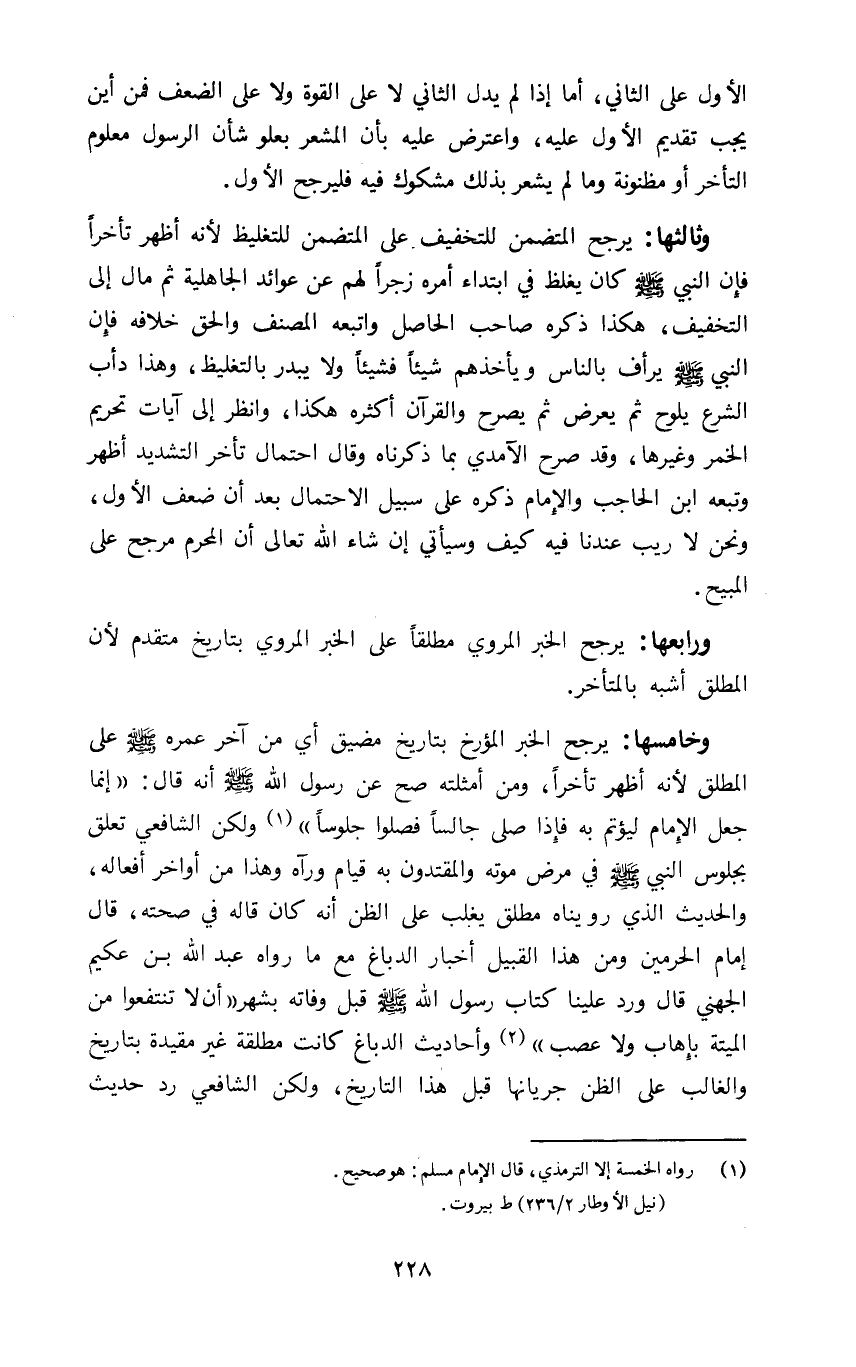 الأول على الثاني، أما إذا لم يدل الثاني لا على القوة ولا على الضعف فمن أين
يجب تقديم الأول عليه، واعترض عليه بأن المشعر بعلو شأن الرسول معلوم
التأخر أو مظنونة وما لم يشعر بذلك مشكوك فيه فليرجح الأول.
وثالثها: يرجح المتضمن للتخفيف على المتضمن للتغليظ لأنه أظهر تأخراً
فإن النبي ﷺ كان يغلظ في ابتداء أمره زجراً لهم عن عوائد الجاهلية ثم مال إلى
التخفيف، هكذا ذكره صاحب الحاصل واتبعه المصنف والحق خلافه فإن
النبي ﷺ يرأف بالناس ويأخذهم شيئاً فشيئاً ولا يبدر بالتغليظ، وهذا دأب
الشرع يلوح ثم يعرض ثم يصرح والقرآن أكثره هكذا، وانظر إلى آيات تحريم
الخمر وغيرها، وقد صرح الآمدي بما ذكرناه وقال احتمال تأخر التشديد أظهر
وتبعه ابن الحاجب والإمام ذكره على سبيل الاحتمال بعد أن ضعف الأول،
ونحن لا ريب عندنا فيه كيف وسيأتي إن شاء الله تعالى أن المحرم مرجح على
المبيح.
ورابعها: يرجح الخبر المروي مطلقاً على الخبر المروي بتاريخ متقدم لأن
المطلق أشبه بالمتأخر.
وخامسها: يرجح الخبر المؤرخ بتاريخ مضيق أي من آخر عمره ﷺ على
المطلق لأنه أظهر تأخراً، ومن أمثلته صح عن رسول الله ﷺ أنه قال: «إنما
جعل الإمام ليؤتم به فإذا صلى جالساً فصلوا جلوساً» (١) ولكن الشافعي تعلق
بجلوس النبي ﷺ في مرض موته والمقتدون به قيام ورآه وهذا من أواخر أفعاله،
والحديث الذي رويناه مطلق يغلب على الظن أنه كان قاله في صحته، قال
إمام الحرمين ومن هذا القبيل أخبار الدباغ مع ما رواه عبد الله بن عكيم
الجهني قال ورد علينا كتاب رسول الله ﷺ قبل وفاته بشهر«أن لا تنتفعوا من
الميتة بإهاب ولا عصب» (٢) وأحاديث الدباغ كانت مطلقة غير مقيدة بتاريخ
والغالب على الظن جريانها قبل هذا التاريخ، ولكن الشافعي رد حديث
(١) رواه الخمسة إلا الترمذي، قال الإمام مسلم: هو صحيح.
(نيل الأوطار ٢٣٦/٢) ط بيروت.
٢٢٨